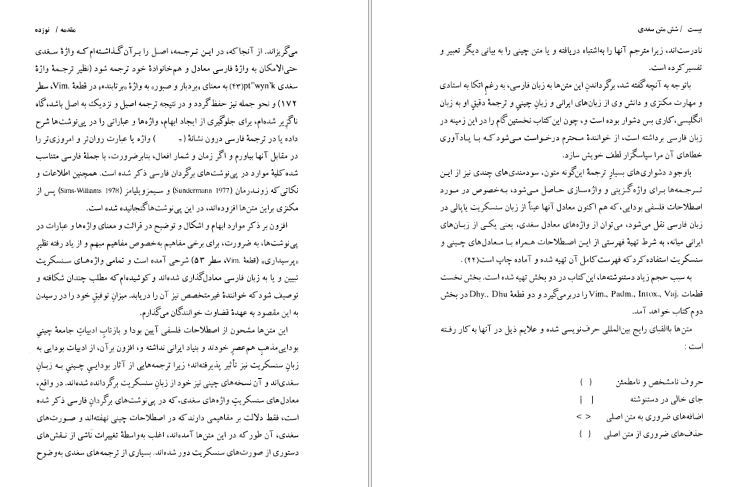 مقدمه / نوزده
می‌گریزاند. از آنجا که، در این ترجمه، اصل را بر آن گذاشته‌ام که واژهٔ سغدی
حتی‌الامکان به واژهٔ فارسی معادل و هم‌خانوادهٔ خود ترجمه شود (نظیر ترجمهٔ واژهٔ
pt"wyn'k(۴۳) به معنای «بردبار و صبور» به واژهٔ «برتابنده»، در قطعهٔ Vim.، سطر
۱۷۲) و نحو جمله نیز حفظ گردد و در نتیجه ترجمه اصیل و نزدیک به اصل باشد، گاه
ناگزیر شده‌ام، برای جلوگیری از ایجاد ابهام، واژه‌ها و عباراتی را در پی‌نوشت‌ها شرح
داده یا در ترجمهٔ فارسی درون نشانهٔ ( = ) واژه یا عبارت روان‌تر و امروزی‌تر را
در مقابل آنها بیاورم و اگر زمان و شمار افعال، بنابر ضرورت، با جملهٔ فارسی متناسب
شده کلیهٔ موارد در پی‌نوشت‌های برگردان فارسی ذکر شده است. همچنین اطلاعات و
نکاتی که زوندرمان (Sundermann 1977) و سیمزویلیامز (Sims-Williams 1978) پس از
مکنزی بر این متن‌ها افزوده‌اند، در این پی‌نوشت‌ها گنجانیده شده است.
افزون بر ذکر موارد ابهام و اشکال و توضیح در قرائت و معنای واژه‌ها و عبارات در
پی‌نوشت‌ها، به ضرورت، برای برخی مفاهیم به‌خصوص مفاهیم مبهم و از یاد رفته نظیر
«پرسیداری» (Vim.، سطر ۵۳) شرحی آمده است و تمامی واژه‌های سنسکریت
تبیین و یا به زبان فارسی معادل‌گذاری شده‌اند و کوشیده‌ام که مطلب چندان شکافته و
توصیف شود که خوانندهٔ غیرمتخصص نیز آن را دریابد. میزان توفیق خود را در رسیدن
به این مقصود به عهدهٔ قضاوت خوانندگان می‌گذارم.
این متن‌ها مشحون از اصطلاحات فلسفی آیین بودا و بازتاب ادبیات جامعهٔ چینی
بودایی‌مذهب هم‌عصر خودند و بنیاد ایرانی نداشته و، افزون بر آن، از ادبیات بودایی به
زبان سنسکریت نیز تأثیر پذیرفته‌اند؛ زیرا ترجمه‌هایی از آثار بودایی چینی به زبان
سغدی‌اند و آن نسخه‌های چینی نیز خود از زبان سنسکریت برگردانده شده‌اند. در واقع،
معادل‌های سنسکریت واژه‌های سغدی، که در پی‌نوشت‌های برگردان فارسی ذکر شده
است، فقط دلالت بر مفاهیمی دارند که در اصطلاحات چینی نهفته‌اند و صورت‌های
سغدی، آن طور که در این متن‌ها آمده‌اند، اغلب به‌واسطهٔ تغییرات ناشی از نقش‌های
دستوری از صورت‌های سنسکریت دور شده‌اند. بسیاری از ترجمه‌های سغدی به‌وضوح
بیست / شش متن سغدی
نادرست‌اند، زیرا مترجم آنها را به‌اشتباه دریافته و یا متن چینی را به بیانی دیگر تعبیر و
تفسیر کرده است.
باتوجه به آنچه گفته شد، برگرداندن این متن‌ها به زبان فارسی، به رغم اتکا به استادی
و مهارت مکنزی و دانش وی از زبان‌های ایرانی و زبان چینی و ترجمهٔ دقیق او به زبان
انگلیسی، کاری بس دشوار بوده است و، چون این کتاب نخستین گام را در این مورد در
زبان فارسی برداشته است، از خوانندهٔ محترم درخواست می‌شود که با یادآوری
خطاهای آن مرا سپاسگزار لطف خویش سازد.
باوجود دشواری‌های بسیار ترجمهٔ این‌گونه متون، سودمندی‌های چندی نیز از این
ترجمه‌ها برای واژه‌گزینی و واژه‌سازی حاصل می‌شود، به‌خصوص در مورد
اصطلاحات فلسفی بودایی، که هم اکنون معادل آنها عیناً از زبان سنسکریت یا پالی در
زبان فارسی نقل می‌شود، می‌توان از واژه‌های معادل سغدی، یعنی یکی از زبان‌های
ایرانی میانه، به شرط تهیهٔ فهرستی از این اصطلاحات همراه با معادل‌های چینی و
سنسکریت استفاده کرد که فهرست کامل آن تهیه شده و آماده چاپ است (۴۲).
به سبب حجم زیاد دستنوشته‌ها، این کتاب در دو بخش تهیه شده است. بخش نخست
قطعات Vim., Padm., Intox., Vaj. را در برمی‌گیرد و دو قطعهٔ Dhy., Dhu در بخش
دوم کتاب خواهد آمد.
متن‌ها با الفبای رایج بین‌المللی حرف‌نویسی شده و علایم ذیل در آنها به کار رفته
است:
حروف نامشخص و نامطمئن ( )
جای خالی در دستنوشته [ ]
اضافه‌های ضروری به متن اصلی < >
حذف‌های ضروری از متن اصلی { }